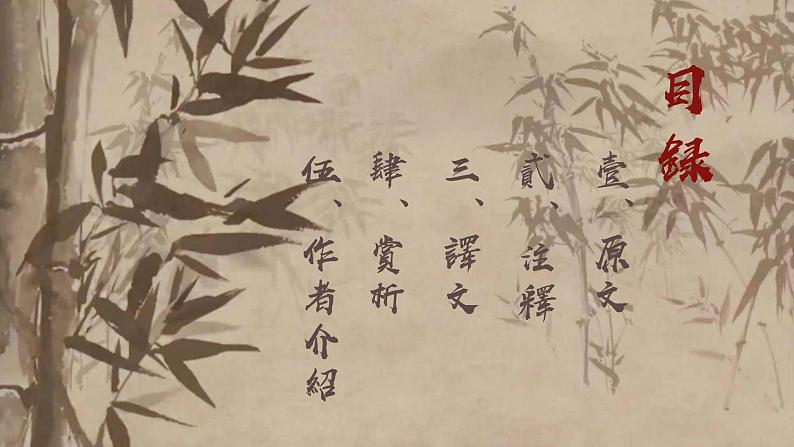 目録
壹、原文
貳、注釋
三、譯文
肆、賞析
伍、作者介紹